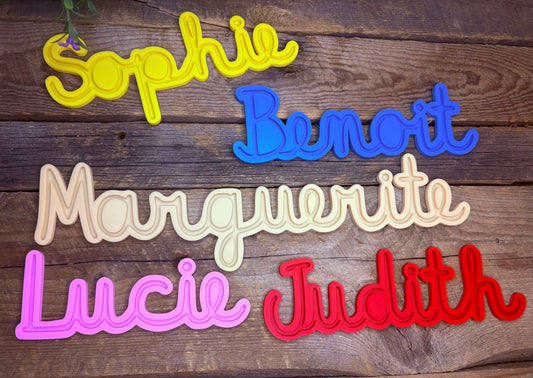 Sophie
Benoit
Marguerite
Lucie
Judith